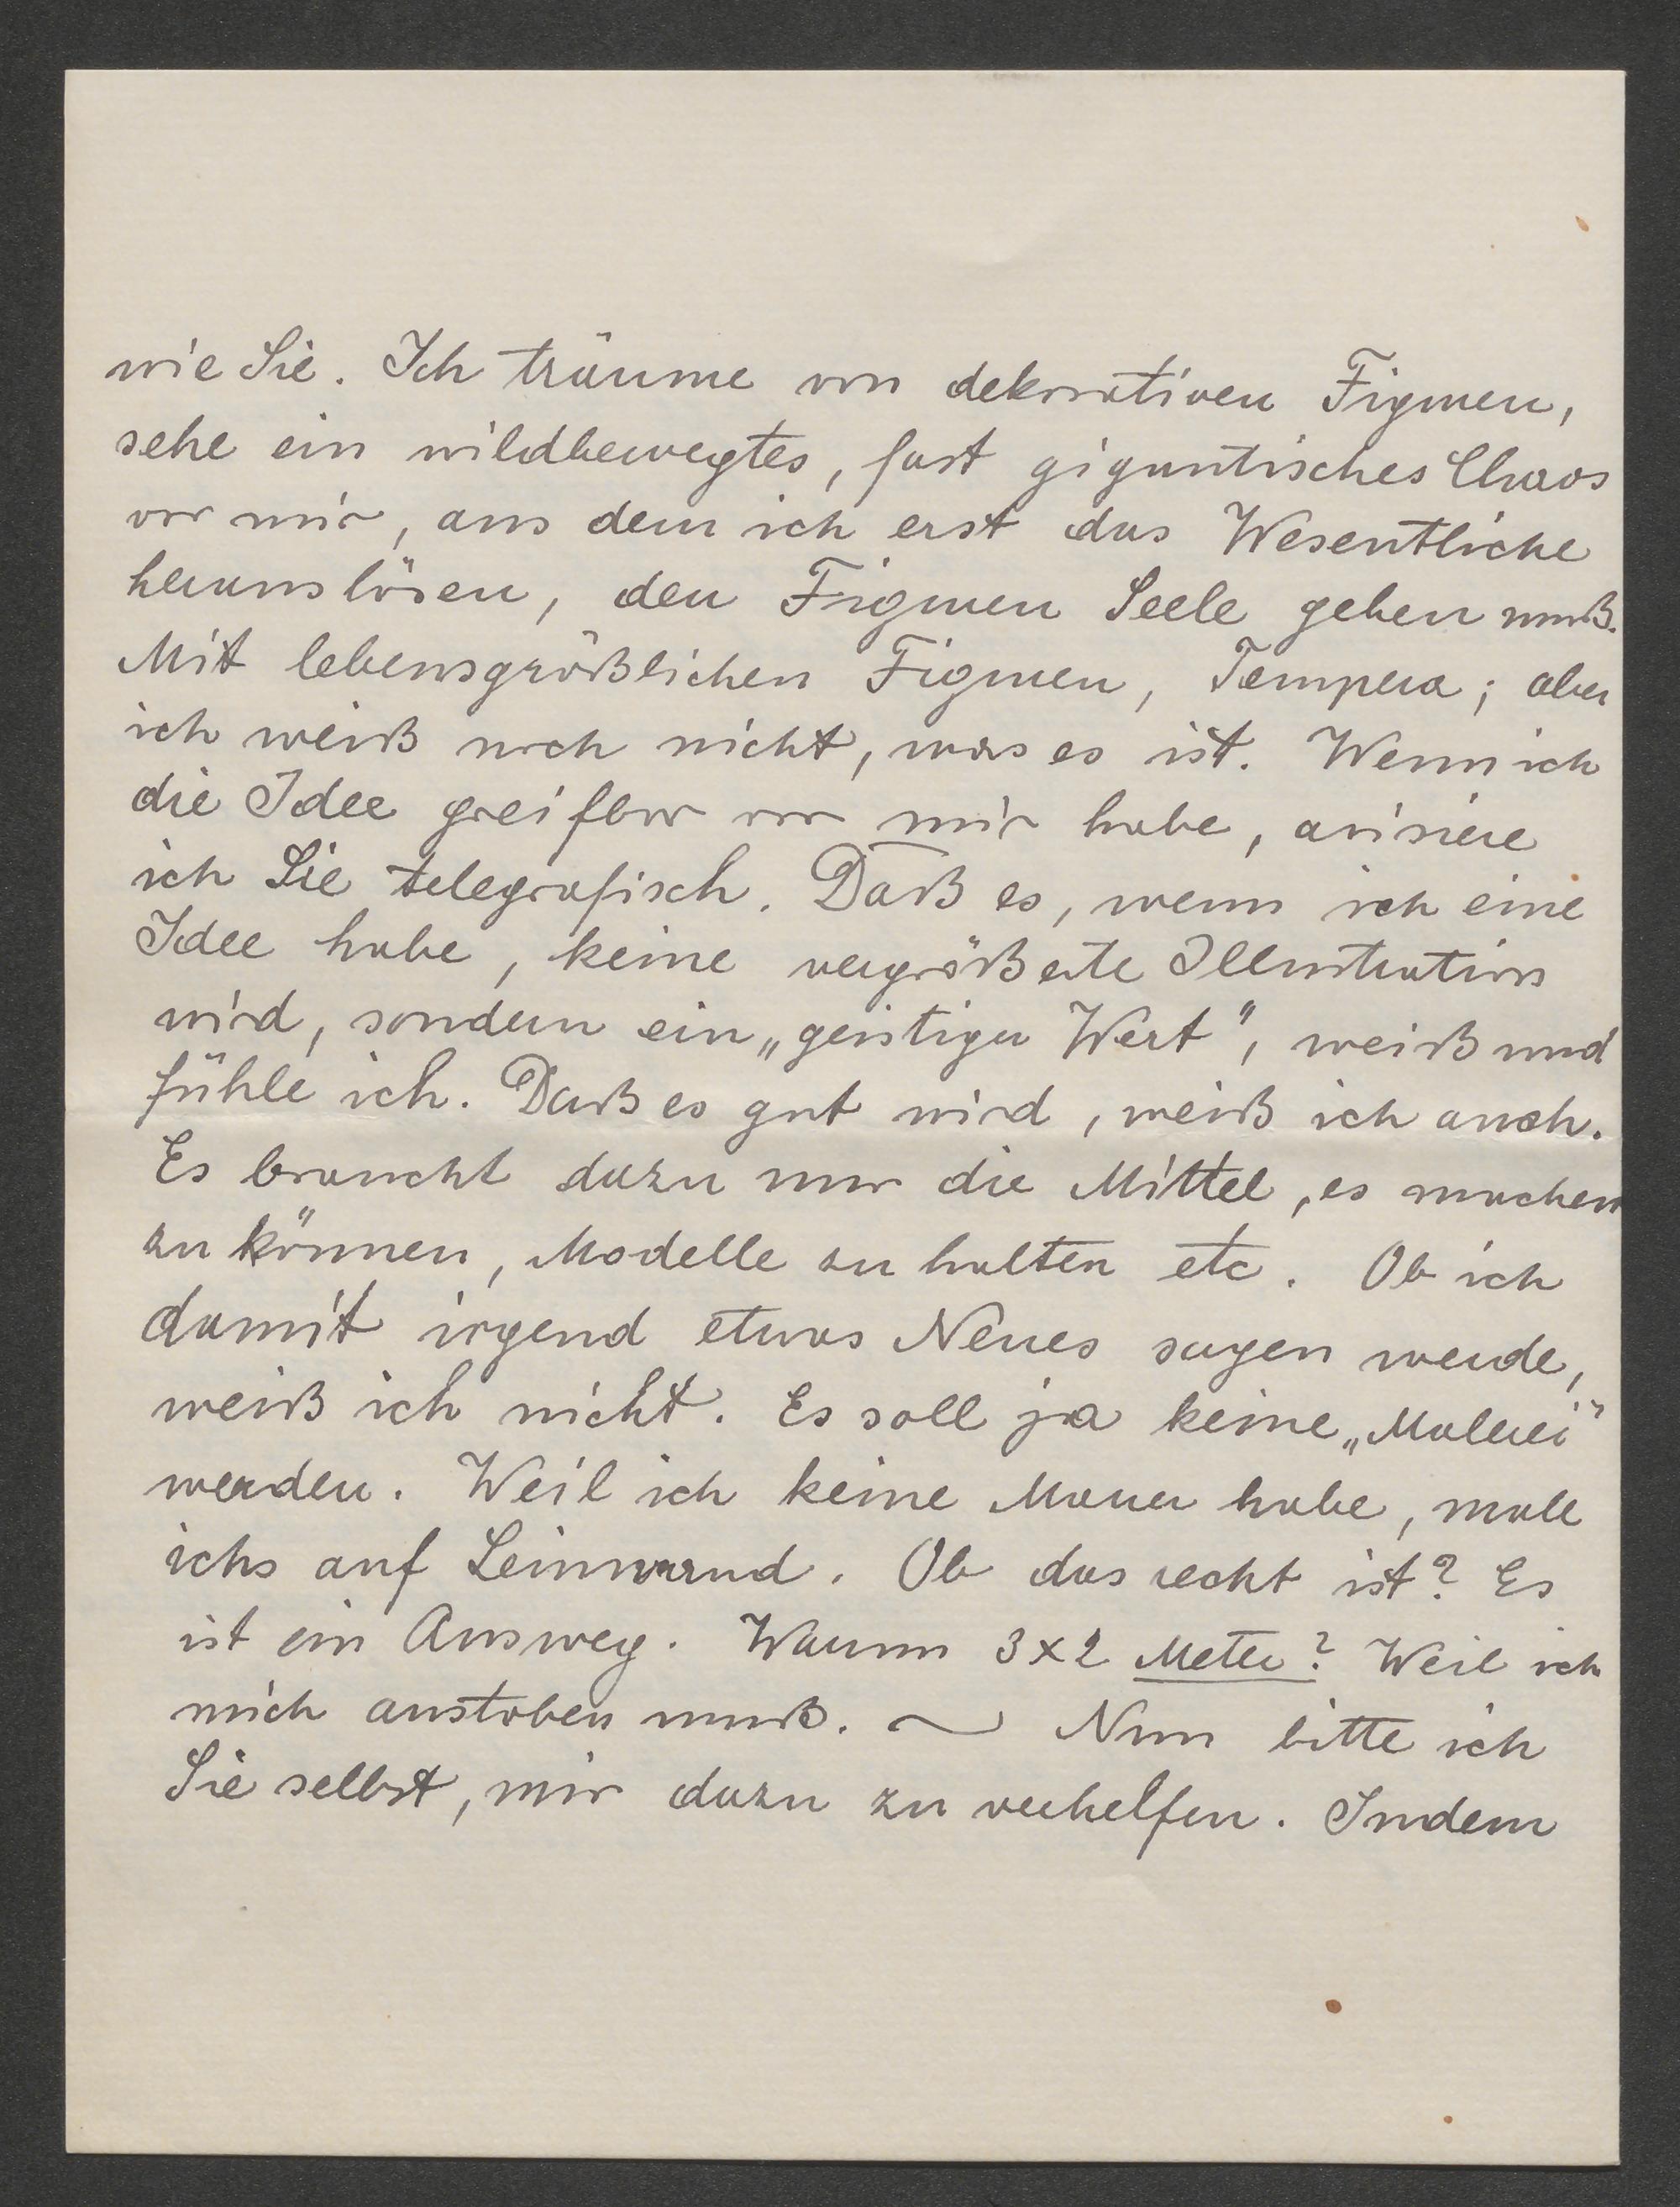 wie Sie. Ich träume von dekorativen Figuren,
sehe ein wildbewegtes, fast gigantisches Chaos
vor mir, aus dem ich erst das Wesentliche
herauslösen, den Figuren Seele geben muß.
Mit lebensgrößlichen Figuren, Tempera; aber
ich weiß noch nicht, was es ist. Wenn ich
die Idee greifbar vor mir habe, avisiere
ich Sie telegrafisch. Daß es, wenn ich eine
Idee habe, keine vergrößerte Illustration
wird, sondern ein „geistiger Wert", weiß und
fühle ich. Daß es gut wird, weiß ich auch.
Es braucht dazu nur die Mittel, es machen
zu können, Modelle zu halten etc. Ob ich
damit irgend etwas Neues sagen werde,
weiß ich nicht. Es soll ja keine „Malerei"
werden. Weil ich keine Mauer habe, male
ichs auf Leinwand. Ob das recht ist? Es
ist ein Ausweg. Warum 3x2 Meter? Weil ich
mich austoben muß. ~ Nun bitte ich
Sie selbst, mir dazu zu verhelfen. Indem